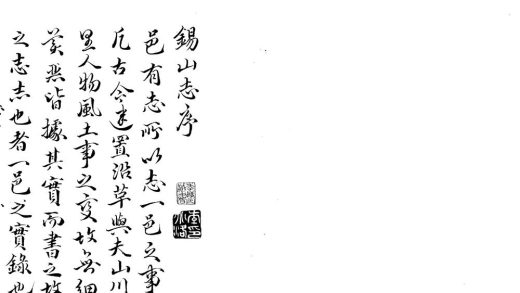 錫山志序
邑有志所以志一邑之事
凡古今建置沿革與夫山川
里人物風土事之變故無細
美惡皆據其實而書之故
之志志也者一邑之實錄也